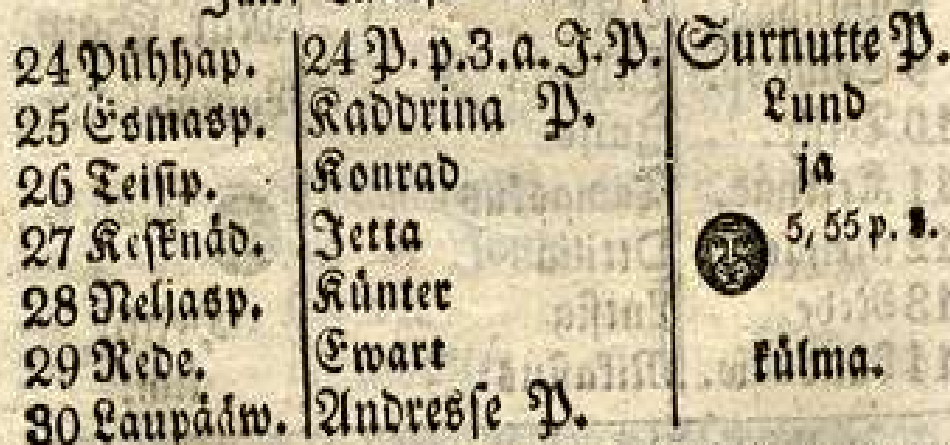 24 Pühhap. 24 P. p. 3. a. J. P. Surnutte P.
25 Esmasp. Kaddrina P. Lund
26 Teisip. Konrad ja
27 Keſknäd. Jetta 5, 55 p. l.
28 Neljasp. Künter
29 Rede. Ewart külma.
30 Laupääw. Andresſe P.